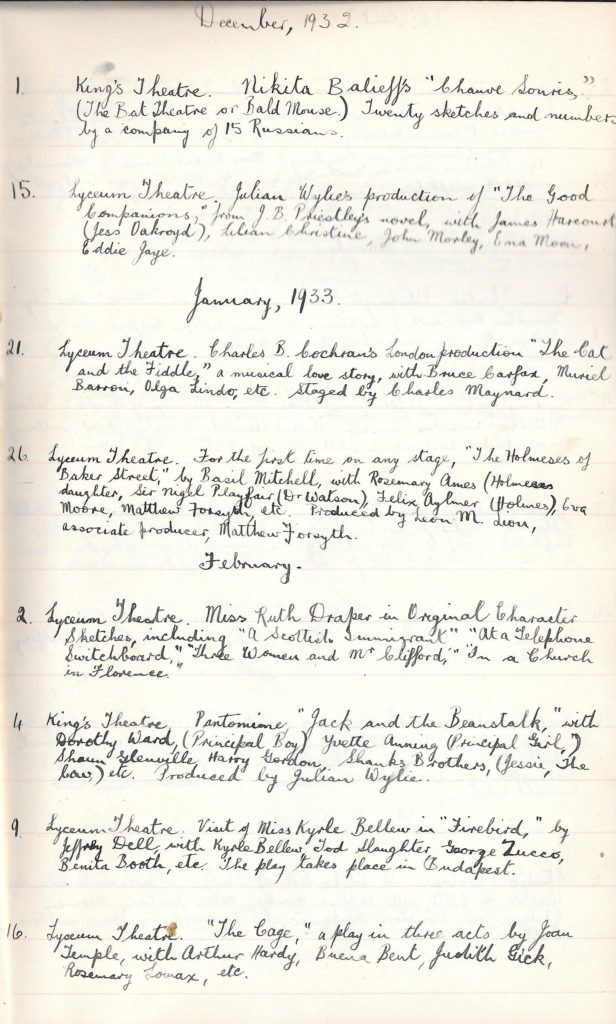 December, 1932.
1. King's Theatre. Nikita Balieff's "Chauve Souris,"
(The Bat Theatre or Bald Mouse.) Twenty sketches and numbers
by a company of 15 Russians.
15. Lyceum Theatre. Julian Wylie's production of "The Good
Companions," from J.B. Priestley's novel, with James Harcourt
(Jess Oakroyd), Lilian Christine, John Morley, Ena Moon,
Eddie Jaye.
January, 1933.
21. Lyceum Theatre. Charles B. Cochran's London production "The Cat
and the Fiddle," a musical love story, with Bruce Carfax, Muriel
Barron, Olga Lindo, etc. Staged by Charles Maynard.
26. Lyceum Theatre. For the first time on any stage, "The Holmeses of
Baker Street," by Basil Mitchell, with Rosemary Ames (Holmeses
daughter, Sir Nigel Playfair (Dr Watson), Felix Aylmer (Holmes), Eva
Moore, Matthew Forsyth, etc. Produced by Leon M. Lion,
associate producer, Matthew Forsyth.
February.
2. Lyceum Theatre. Miss Ruth Draper in Original Character
Sketches, including "A Scottish Immigrant" "At a Telephone
Switchboard," "Three Women and Mr Clifford," "In a Church
in Florence."
4. King's Theatre. Pantomime, "Jack and the Beanstalk," with
Dorothy Ward, (Principal Boy) Yvette Anning (Principal Girl,")
Shaun Glenville, Harry Gordon, Shanks Brothers, (Jessie, The
Cow,) etc. Produced by Julian Wylie.
9. Lyceum Theatre. Visit of Miss Kyrle Bellew in "Firebird," by
Jeffrey Dell, with Kyrle Bellew, Tod Slaughter, George Zucco,
Benita Booth, etc. The play takes place in Budapest.
16. Lyceum Theatre. "The Cage," a play in three acts by Joan
Temple, with Arthur Hardy, Buena Bent, Judith Gick,
Rosemary Lomax, etc.